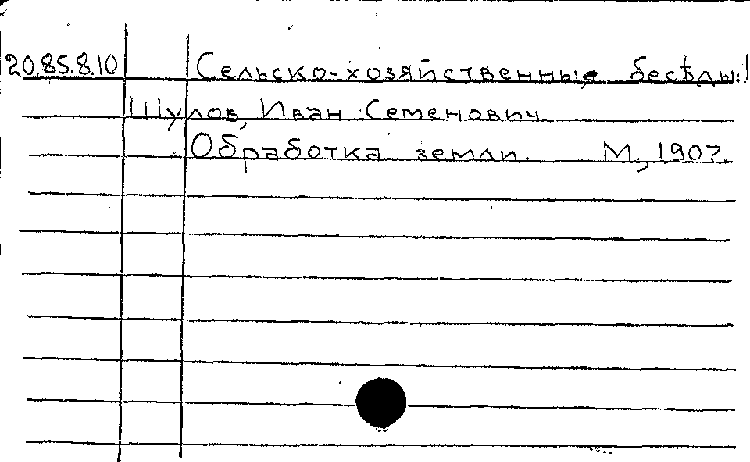 20.85.8.10 Сельско-хозяйственныя бесѣды:1
Шулов, Иван Семенович
Обработка земли. М., 1907.